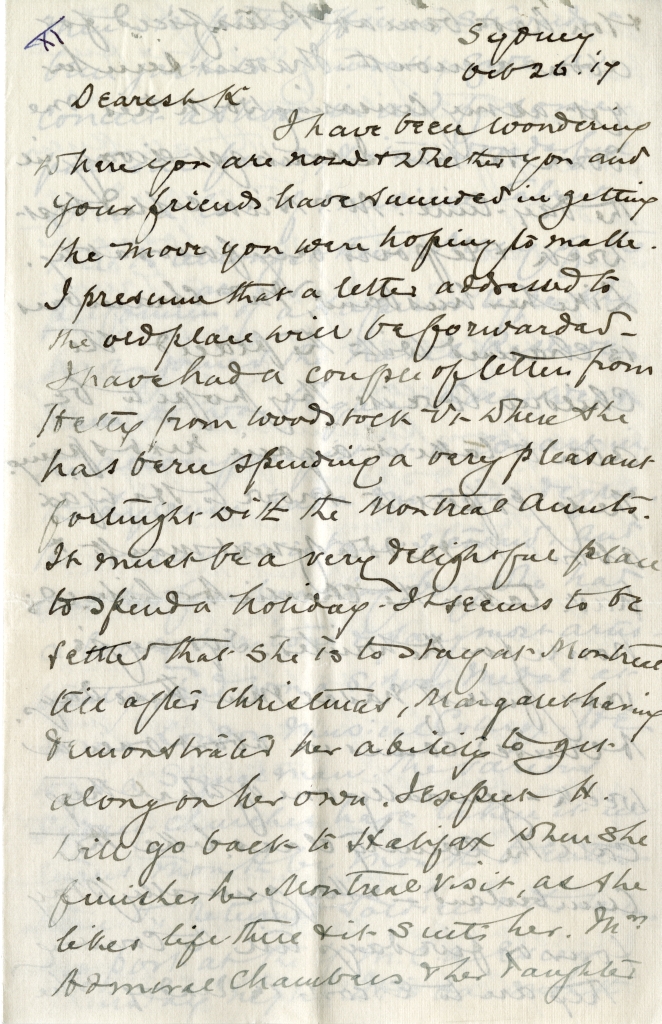 XI
Sydney
Oct 26.17
Dearest K
I have been wondering
where you are now & whether you and
your friends have succeeded in getting
the move you were hoping to make.
I presume that a letter addressed to
the old place will be forwarded -
I have had a couple of letters from
Hetty from Woodstock Vt where she
has been spending a very pleasant
fortnight with the Montreal Aunts.
It must be a very delightful place
to spend a holiday. It seems to be
settled that she is to stay at Montreal
till after Christmas, Margaret having
demonstrated her ability to get
along on her own. I expect H.
will go back to Halifax when she
finishes her Montreal visit, as she
likes life there & it suits her. Mrs
Admiral Chambers & her daughter